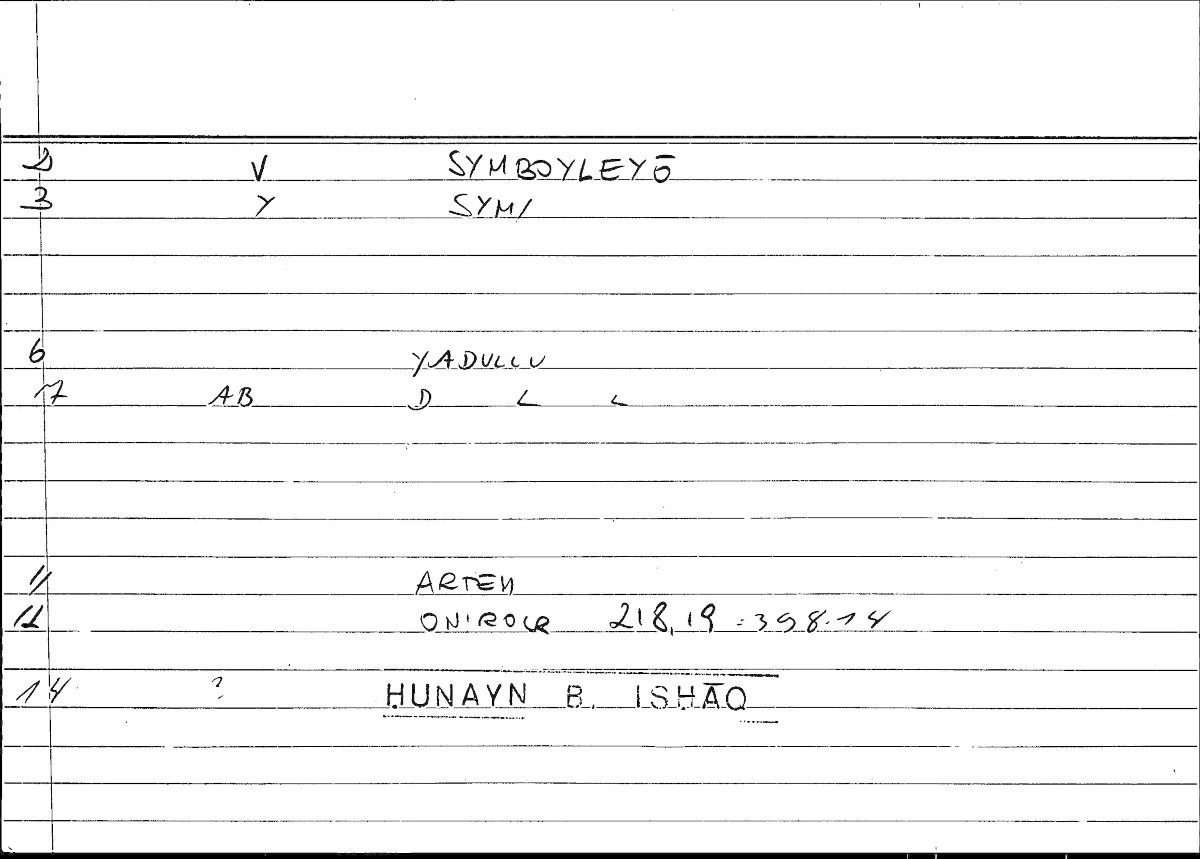 2 V SYMBOYLEYŌ
3 Y SYM/
6 YADULLU
7 AB D L L
11 ARTEM
12 ONIROCR 218,19 = 398.14
14 ? ḤUNAYN B. ISḤĀQ